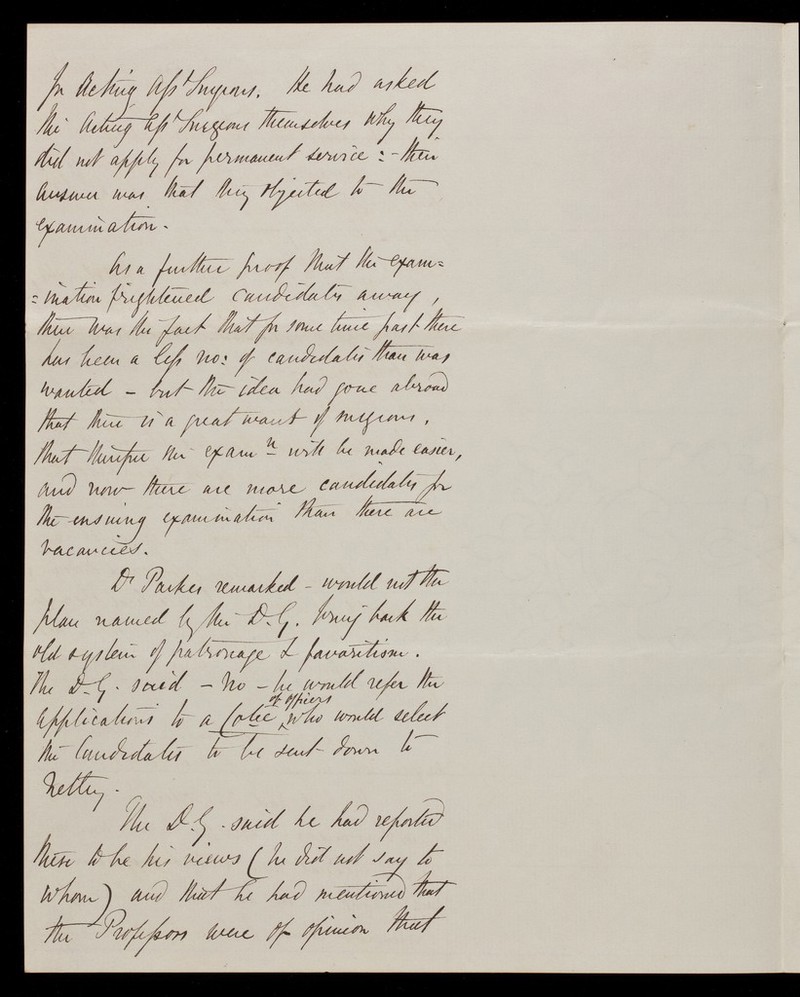 for Acting Asst Surgeons. He had asked
the Acting Asst Surgeons themselves why they
did not apply for permanent service :- their
answer was that they objected to the
examination -
As a further proof that the exam=
=ination frightened candidates away,
there was the fact that for some time past there
has been a less no: of candidates than was
wanted - but the idea had gone abroad
that there is a great want of surgeons,
that therefore the examn will be made easier,
and now there are more candidates for
the ensuing examination than there are
vacancies.
Dr Parkes remarked - would not the
plan named by the D.G. bring back the
old system of patronage & favoritism.
The D.G. said - No - he would refer the
of officers
applications to a Cotee who would select
the Candidates to be sent down to
Netley.
The D.G. said he had reported
these to be his views (he did not say to
whom) and that he had mentioned that
the Professors were of opinion that